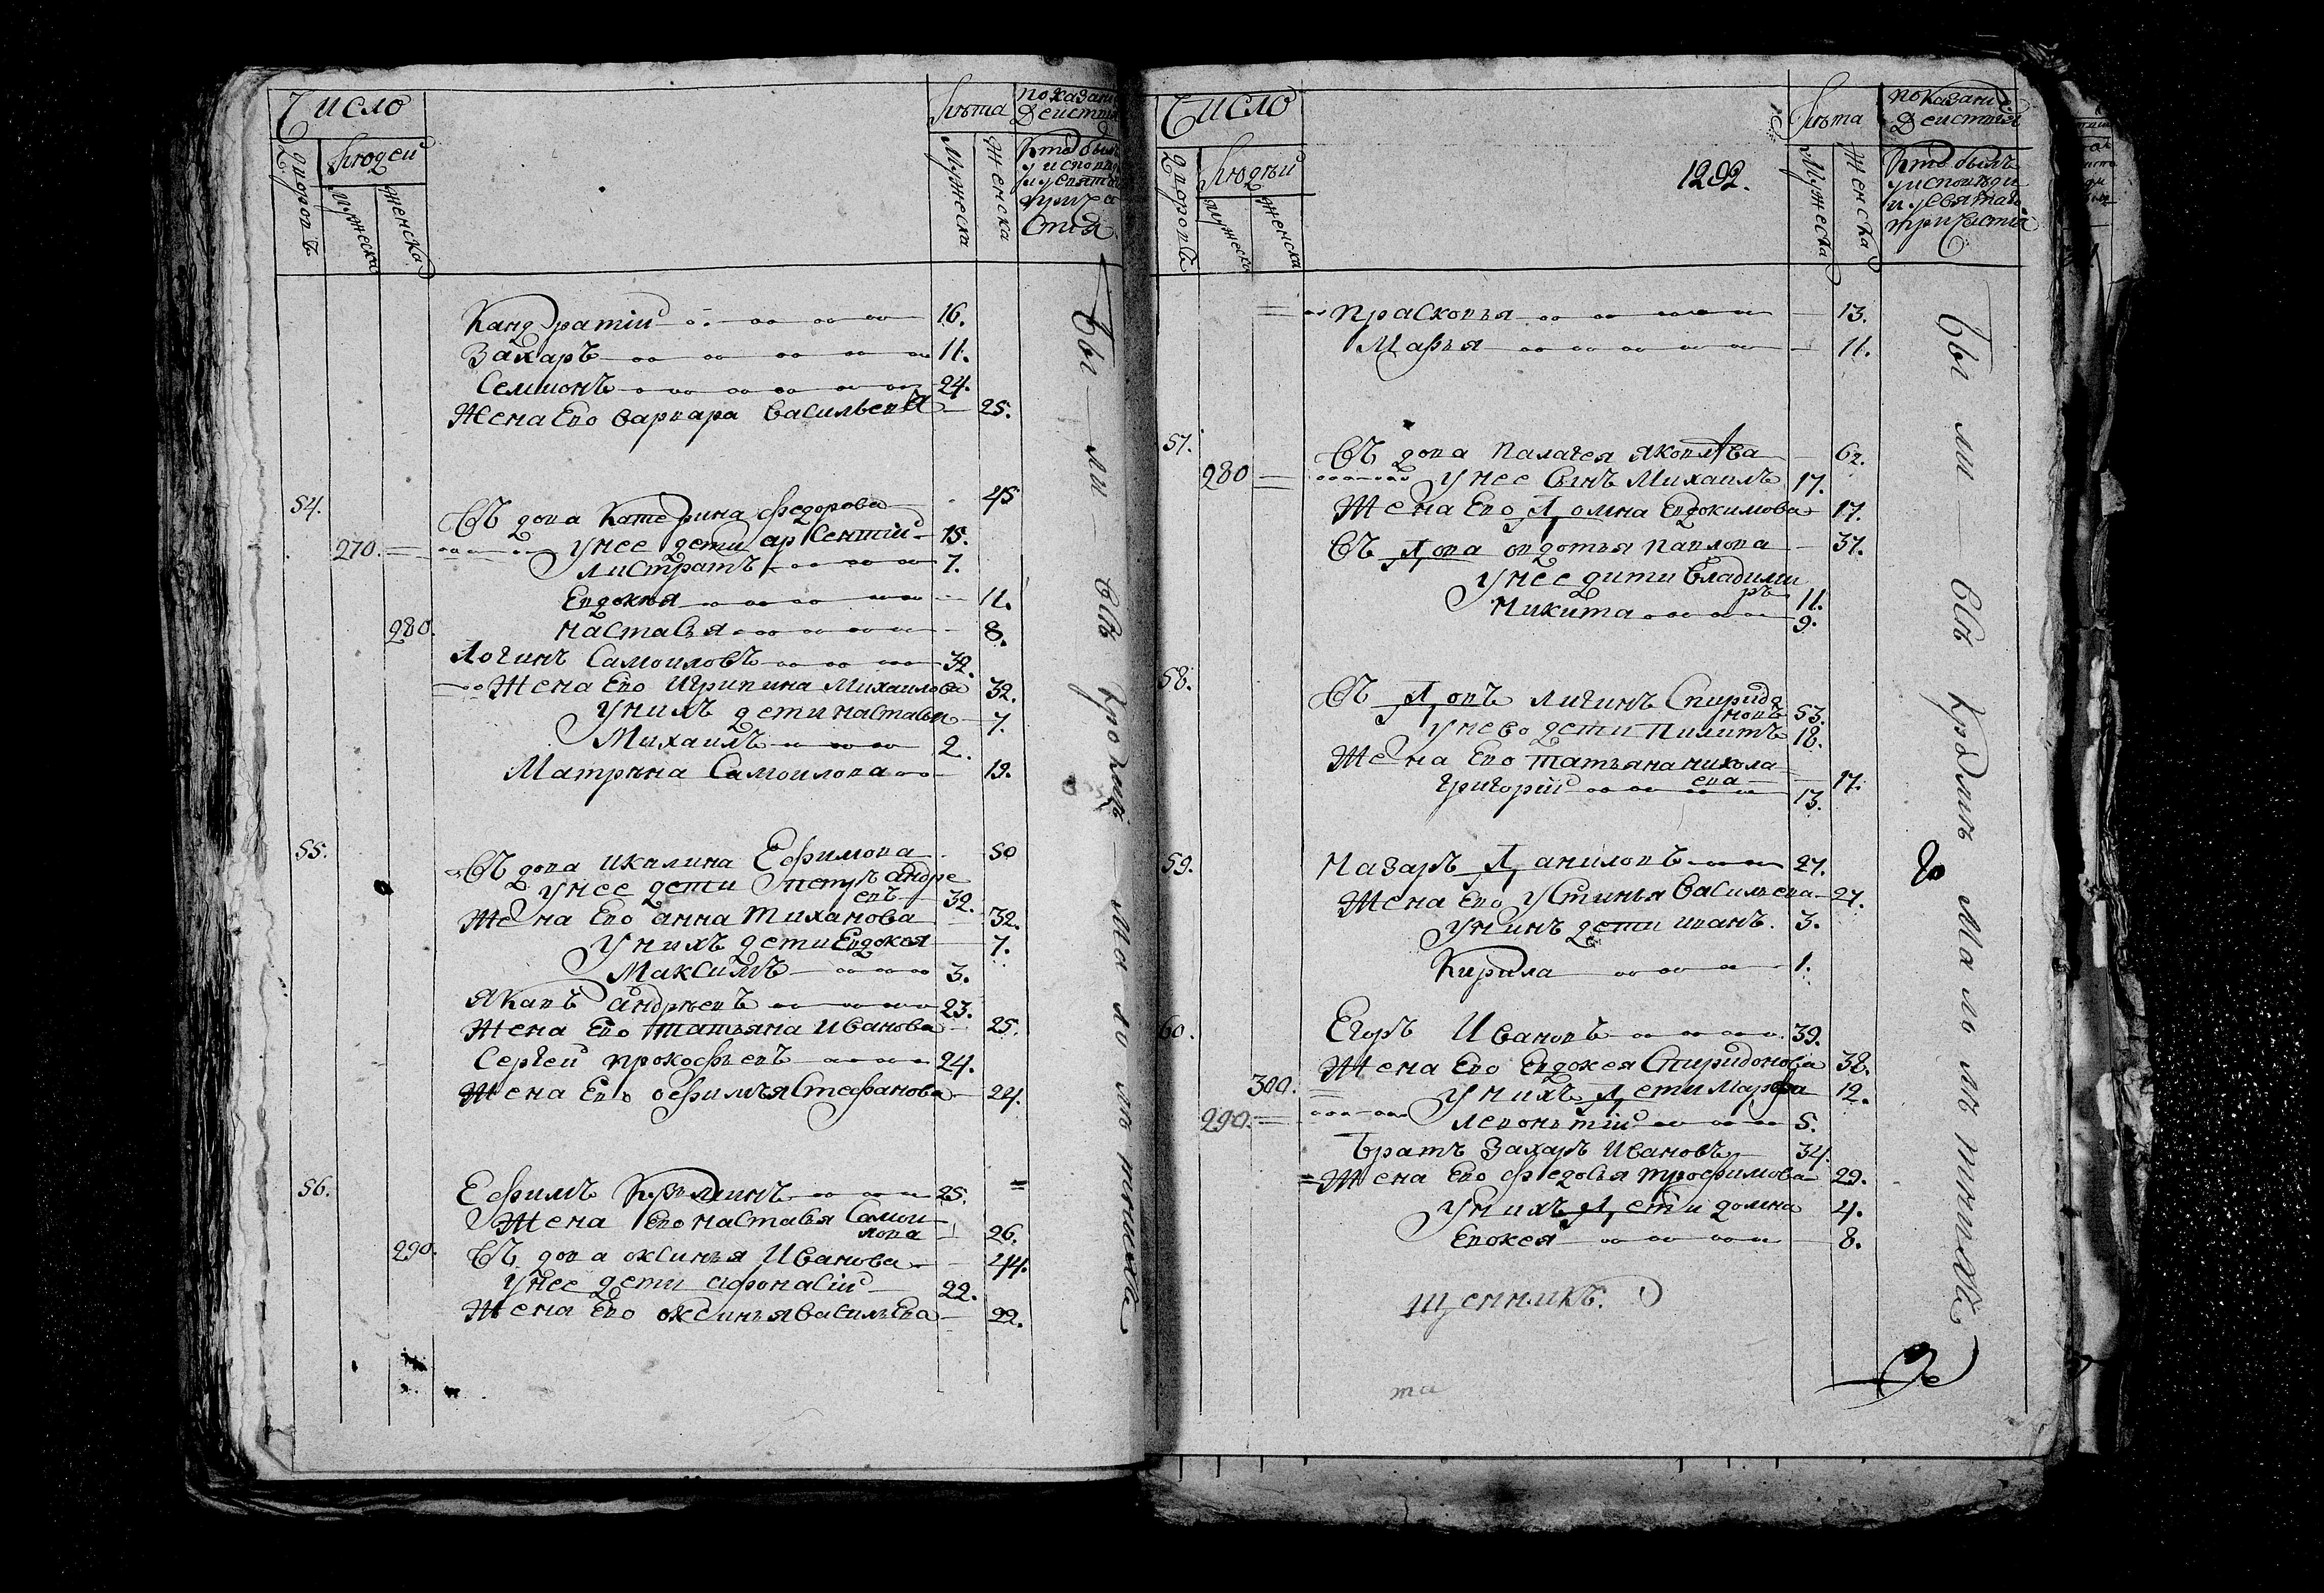 Число
Лѣта
показание Действия
дворовъ
Людей
Мужеска
женска
Мужеска
Женска
Кто былъ
у исповѣди
и у святаго
причастия
Кандратіи 16.
Захаръ 11.
Семионъ 24.
Жена Ево варвара васильева 25.
54. Въдова Катерина федорова 45
270. унее дети арсентіи 15.
листратъ 7.
Евдокѣя 11.
280. настасья 8.
Логинъ Самоиловъ 32.
Жена Ево игрипина Михаилова 32.
унихъ дети настасьи 7.
Михаилъ 2.
Матрѣна Самоилова 19.
55. Въдова икилина Ефимова 50
унее дети петръ андре
евъ 32.
Жена Ево анна тиханова 32.
унихъ дети Евдокея 7.
Максимъ 3.
якавъ андрѣевъ 23.
Жена Ево татьяна Иванова 25.
Сергеи прокофьевъ 24.
Жена Ево офимья Стефанова 24.
56. Ефимъ Кузьминъ 25.
Жена Ево настасья Самои
лова 26.
290. Въдова оксинья Иванова 44.
унее дети афонасіи 22.
Жена Ево оксинья васильева 22.
Бы ли всѣ кромѣ малолѣтныхъ
Число
1292.
Лѣта
показание Действия
дворовъ
Людей
мужеска
женска
Мужеска
Женска
Кто былъ
у исповѣди
и у святаго
причастия
прасковья 13.
Марья 11.
57. Въдова палагея яковлева 62.
280 унее Сынъ Михаилъ 17.
Жена Ево Домна Евдокимова 17.
Въдова овдотья павлова 37.
унее дити владими
ръ 11.
Никита 9.
58. Въдовъ лигинъ Спиридо
новъ 53.
унево дети пилитъ 18.
Жена Ево татьяна никола
ева 17.
григорій 13.
59. Назаръ Даниловъ 27.
Жена Ево устинья васильева 27.
унихъ дети иванъ. 3.
Кирила 1.
60. Егоръ Ивановъ 39.
Жена Ево Евдокея Спиридонова 38.
300. унихъ Дети Марфа 12.
290. левонътіи 5.
братъ Захаръ Ивановъ 34.
Жена Ево федосья трофимова 29.
унихъ Дети домна 4.
Евокея 8.
щенникъ.
та
Бы ли всѣ кромѣ малолѣтныхъ